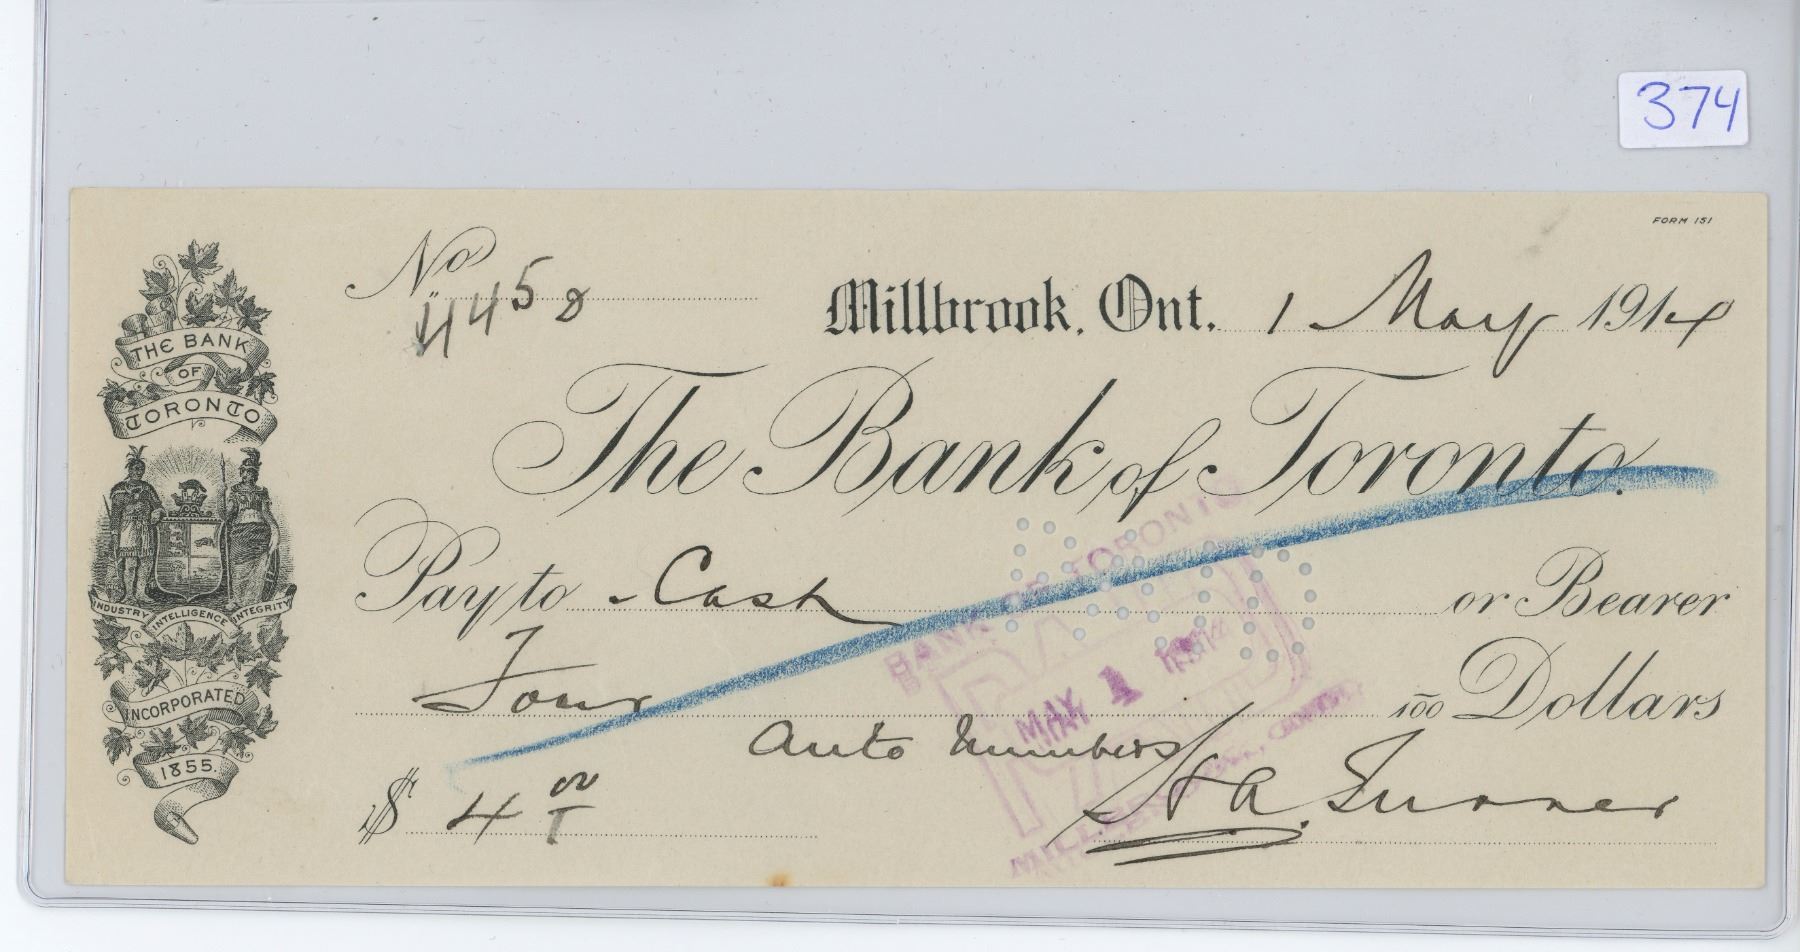 374
FORM 151
No 4458
Millbrook, Ont. 1 May 1914
THE BANK
OF
TORONTO
The Bank of Toronto.
Pay to Cash or Bearer
INDUSTRY INTELLIGENCE INTEGRITY
Four 100 Dollars
BANK OF TORONTO
PAID
MAY 1 1914
MILLBROOK,
INCORPORATED
1855.
Auto Numbers
$ 4 00
H A. Turner